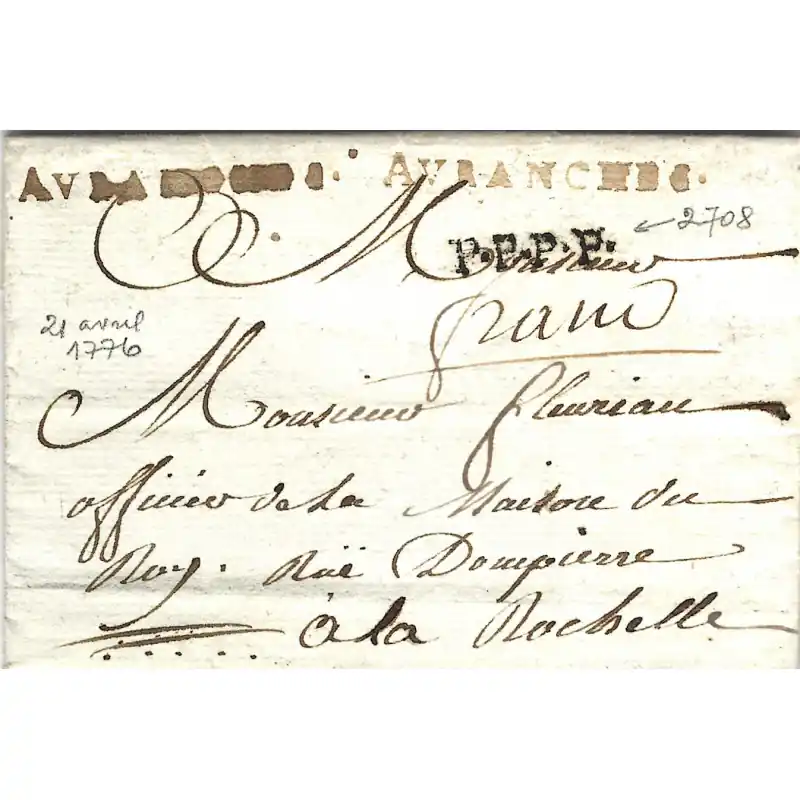 AVRANCHES. AVRANCHES.
← 2708
P.P.P.P.
Monsieur
franc
21 avril
1776
Monsieur fleuriau
officier de La Maison du
Roy. Ruë Dompierre
à La Rochelle